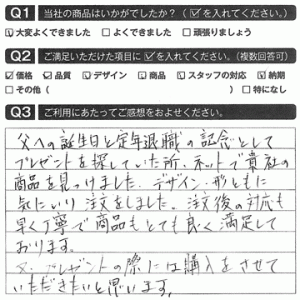 Q1 当社の商品はいかがでしたか？（☑を入れてください。）
☑大変よくできました □よくできました □頑張りましょう
Q2 ご満足いただけた項目に☑を入れてください。（複数回答可）
☑価格 ☑品質 ☑デザイン ☑商品 ☑スタッフの対応 ☑納期
□その他（ ） □特になし
Q3 ご利用にあたってご感想をおよせください。
父への誕生日と定年退職の記念として
プレゼントを探していた所、ネットで貴社の
商品を見つけました。デザイン・形ともに
気にいり注文をしました。注文後の対応も
早く丁寧で商品もとても良く満足して
おります。
又、プレゼントの際には購入をさせて
いただきたいと思います。